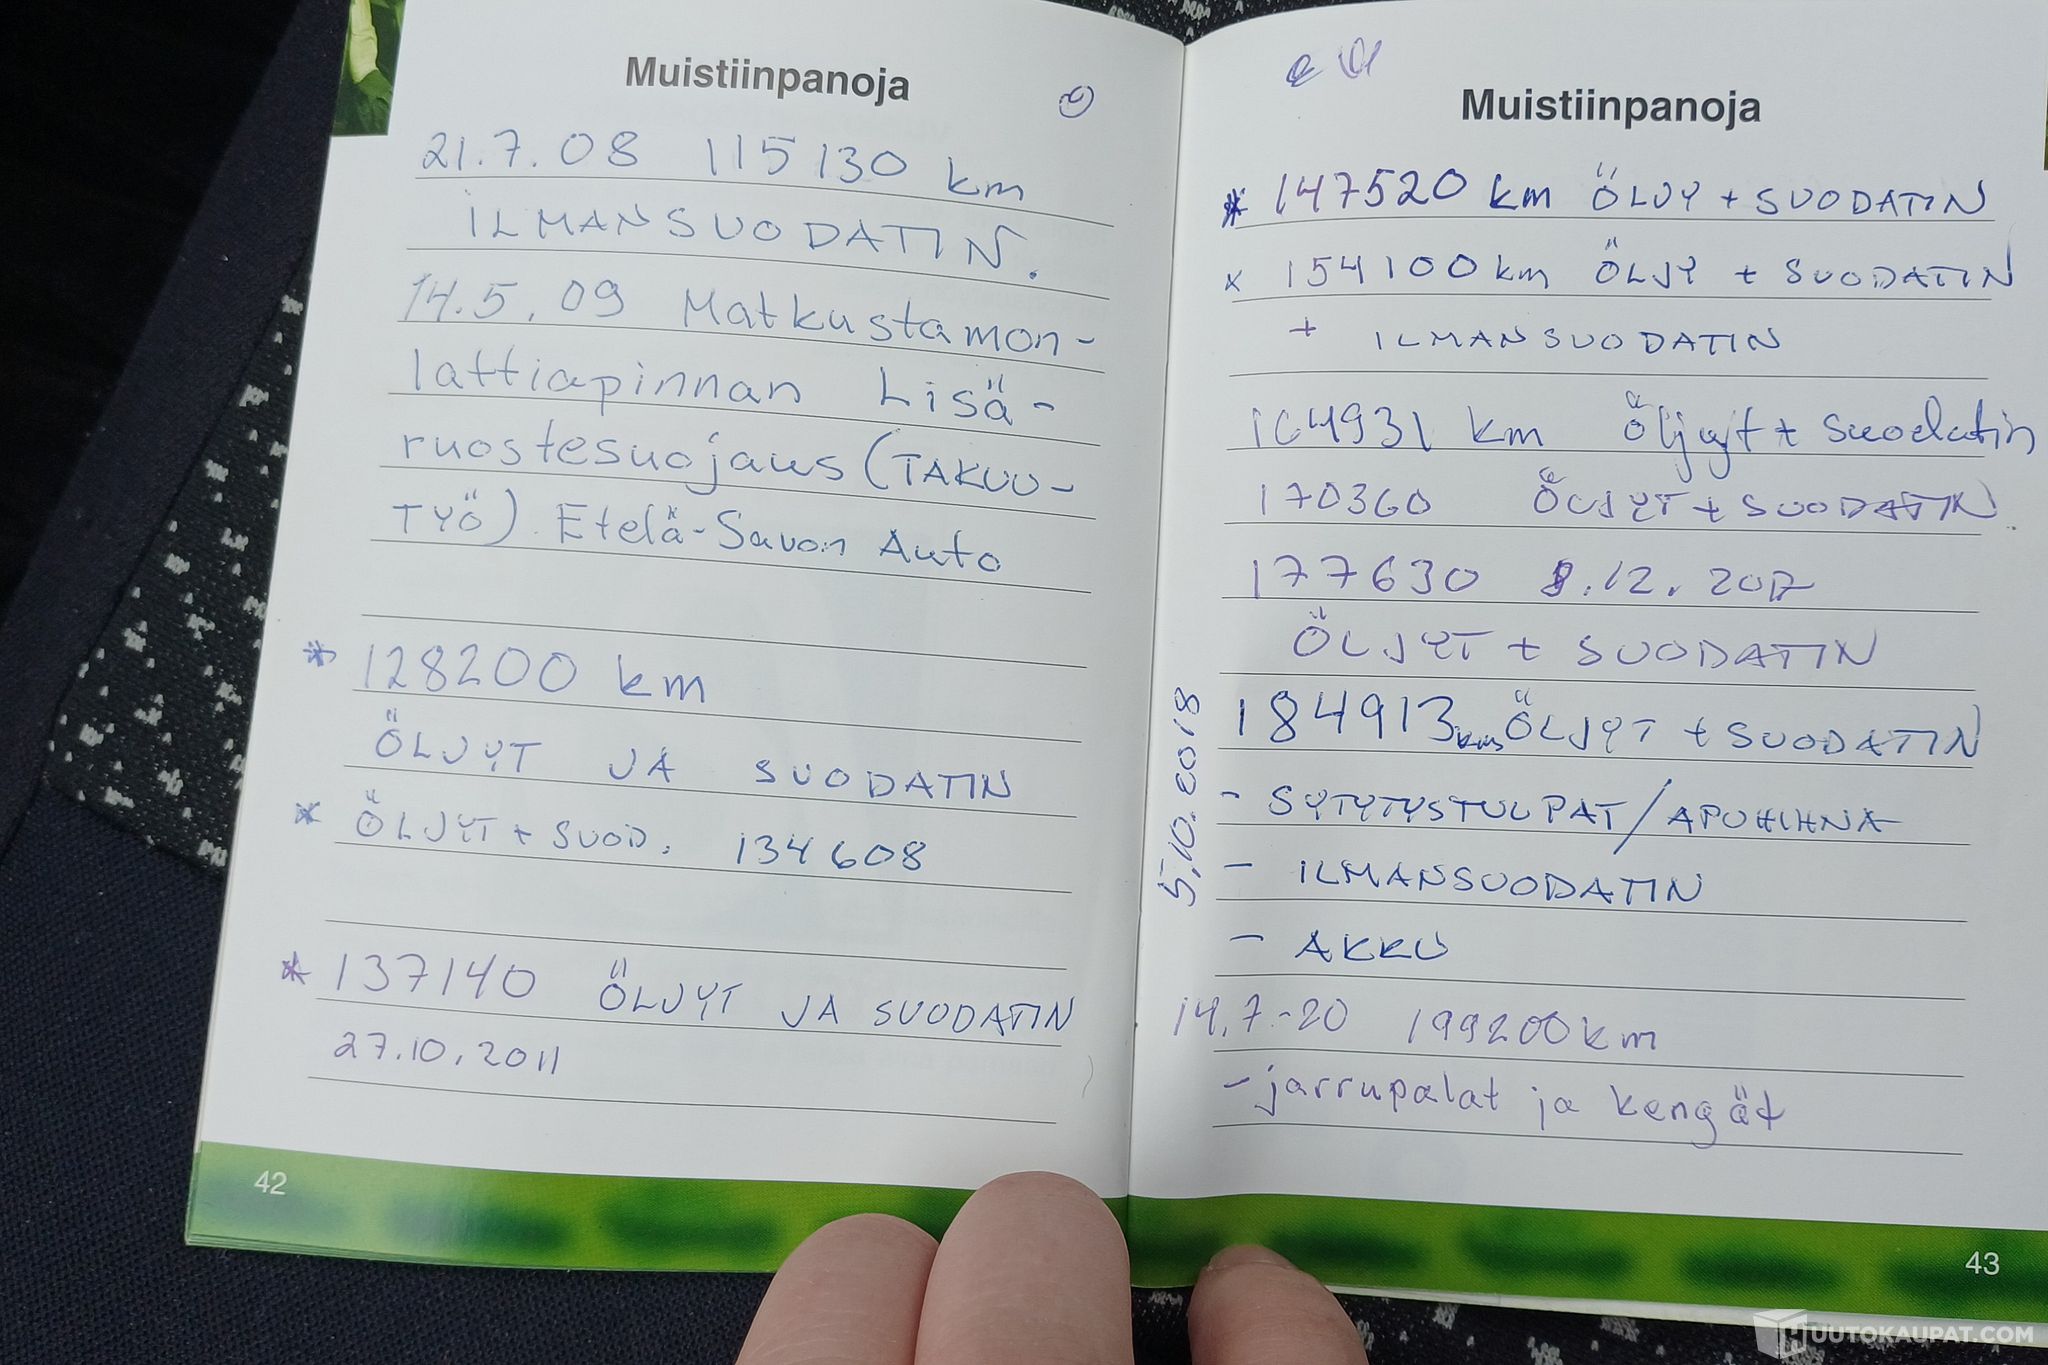 Muistiinpanoja
21.7.08 115130 km
ILMANSUODATIN.
14.5.09 Matkustamon-
lattiapinnan Lisä-
ruostesuojaus (TAKUU-
TYÖ). Etelä-Savon Auto
* 128200 km
ÖLJYT JA SUODATIN
* ÖLJYT + SUOD. 134608
* 137140 ÖLJYT JA SUODATIN
27.10.2011
42
Muistiinpanoja
* 147520 km ÖLJY + SUODATIN
x 154100 km ÖLJY + SUODATIN
+ ILMANSUODATIN
164931 km Öljyt + Suodatin
170360 ÖLJYT + SUODATIN
177630 8.12.2017
ÖLJYT + SUODATIN
5.10.2018
184913 km ÖLJYT + SUODATIN
- SYTYTYSTULPAT/APUHIHNA
- ILMANSUODATIN
- AKKU
14.7.-20 199200 km
- jarrupalat ja kengät
43
HUUTOKAUPAT.COM